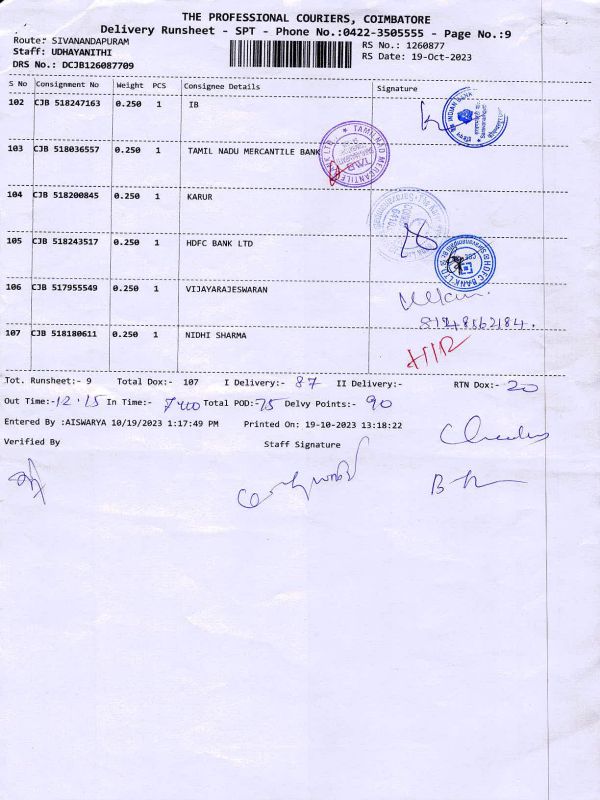 THE PROFESSIONAL COURIERS, COIMBATORE
Delivery Runsheet - SPT - Phone No.:0422-3505555 - Page No.:9
Route: SIVANANDAPURAM
Staff: UDHAYANITHI
DRS No.: DCJB126087709
RS No.: 1260877
RS Date: 19-Oct-2023
S No Consignment No Weight PCS Consignee Details Signature
102 CJB 518247163 0.250 1 IB
INDIAN BANK
103 CJB 518036557 0.250 1 TAMIL NADU MERCANTILE BANK
TAMILNAD MERCANTILE BANK LTD.
TMB
104 CJB 518200845 0.250 1 KARUR
105 CJB 518243517 0.250 1 HDFC BANK LTD
HDFC BANK LTD
106 CJB 517955549 0.250 1 VIJAYARAJESWARAN
107 CJB 518180611 0.250 1 NIDHI SHARMA
Tot. Runsheet:- 9 Total Dox:- 107 I Delivery:- 87 II Delivery:- RTN Dox:- 20
Out Time:- 12.15 In Time:- Total POD:- 75 Delvy Points:- 90
Entered By :AISWARYA 10/19/2023 1:17:49 PM Printed On: 19-10-2023 13:18:22
Verified By Staff Signature